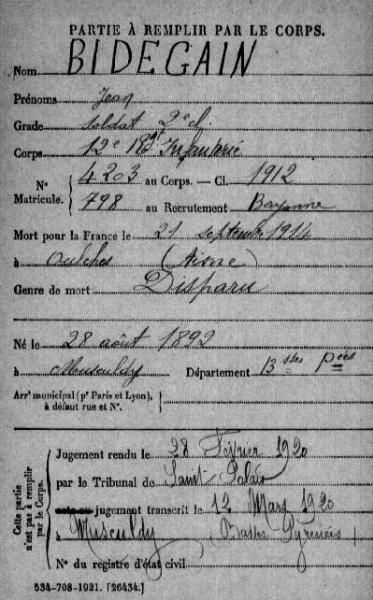 PARTIE À REMPLIR PAR LE CORPS.
Nom BIDEGAIN
Prénoms Jean
Grade soldat 2e cl.
Corps 12e Infanterie
N° Matricule. { 4203 au Corps. — Cl. 1912
798 au Recrutement Bayonne
Mort pour la France le 21 septembre 1914
à Oulches (Aisne)
Genre de mort Disparu
Né le 28 août 1892
à Musculdy Département Bses Pées
Arrt municipal (pr Paris et Lyon), à défaut rue et N°.
Cette partie n'est pas à remplir par le Corps.
Jugement rendu le 28 Février 1920
par le Tribunal de Saint Palais
jugement transcrit le 12 Mars 1920
à Musculdy (Basses Pyrénées)
N° du registre d'état civil
534-708-1921. [26434.]